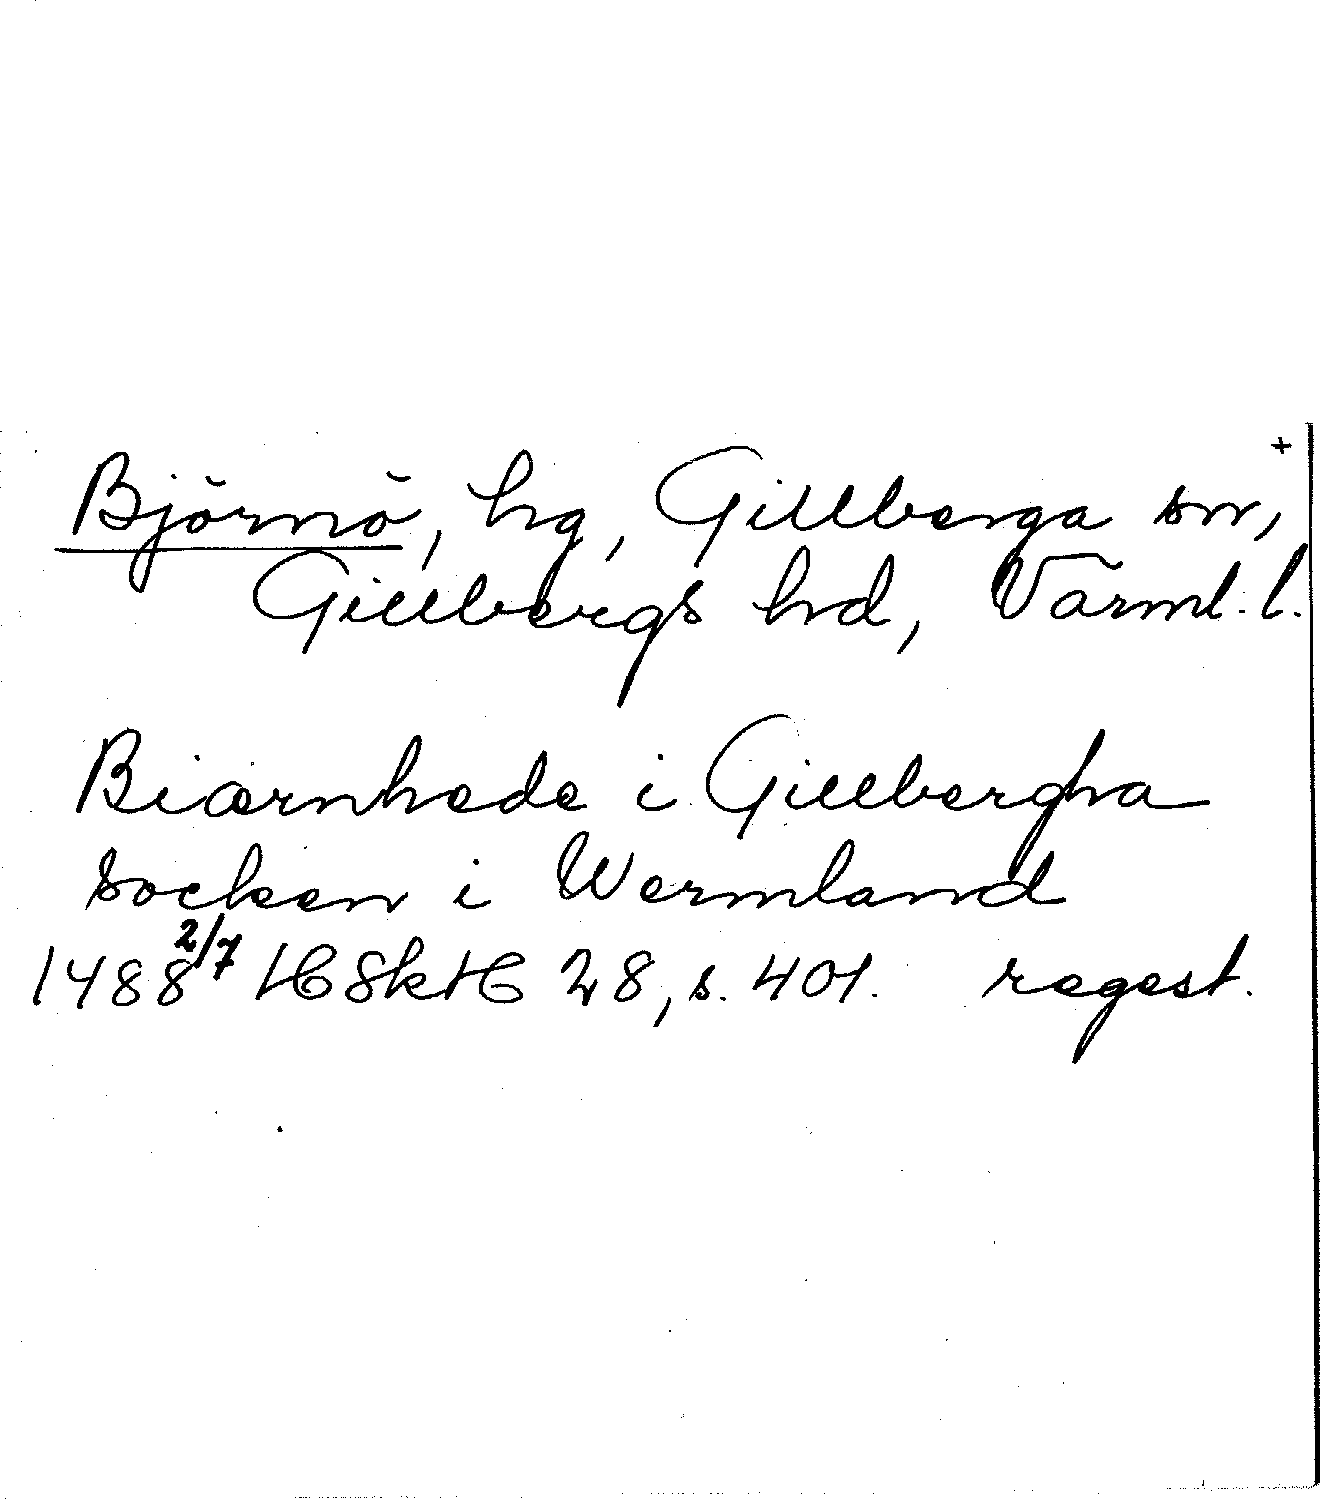 +
Björnö, hg, Gillberga sn,
Gillbergs hd, Värml. l.
Biærnhede i Gillbergha
socken i Wermland
1488 2/7 HSkH 28, s. 401. regest.